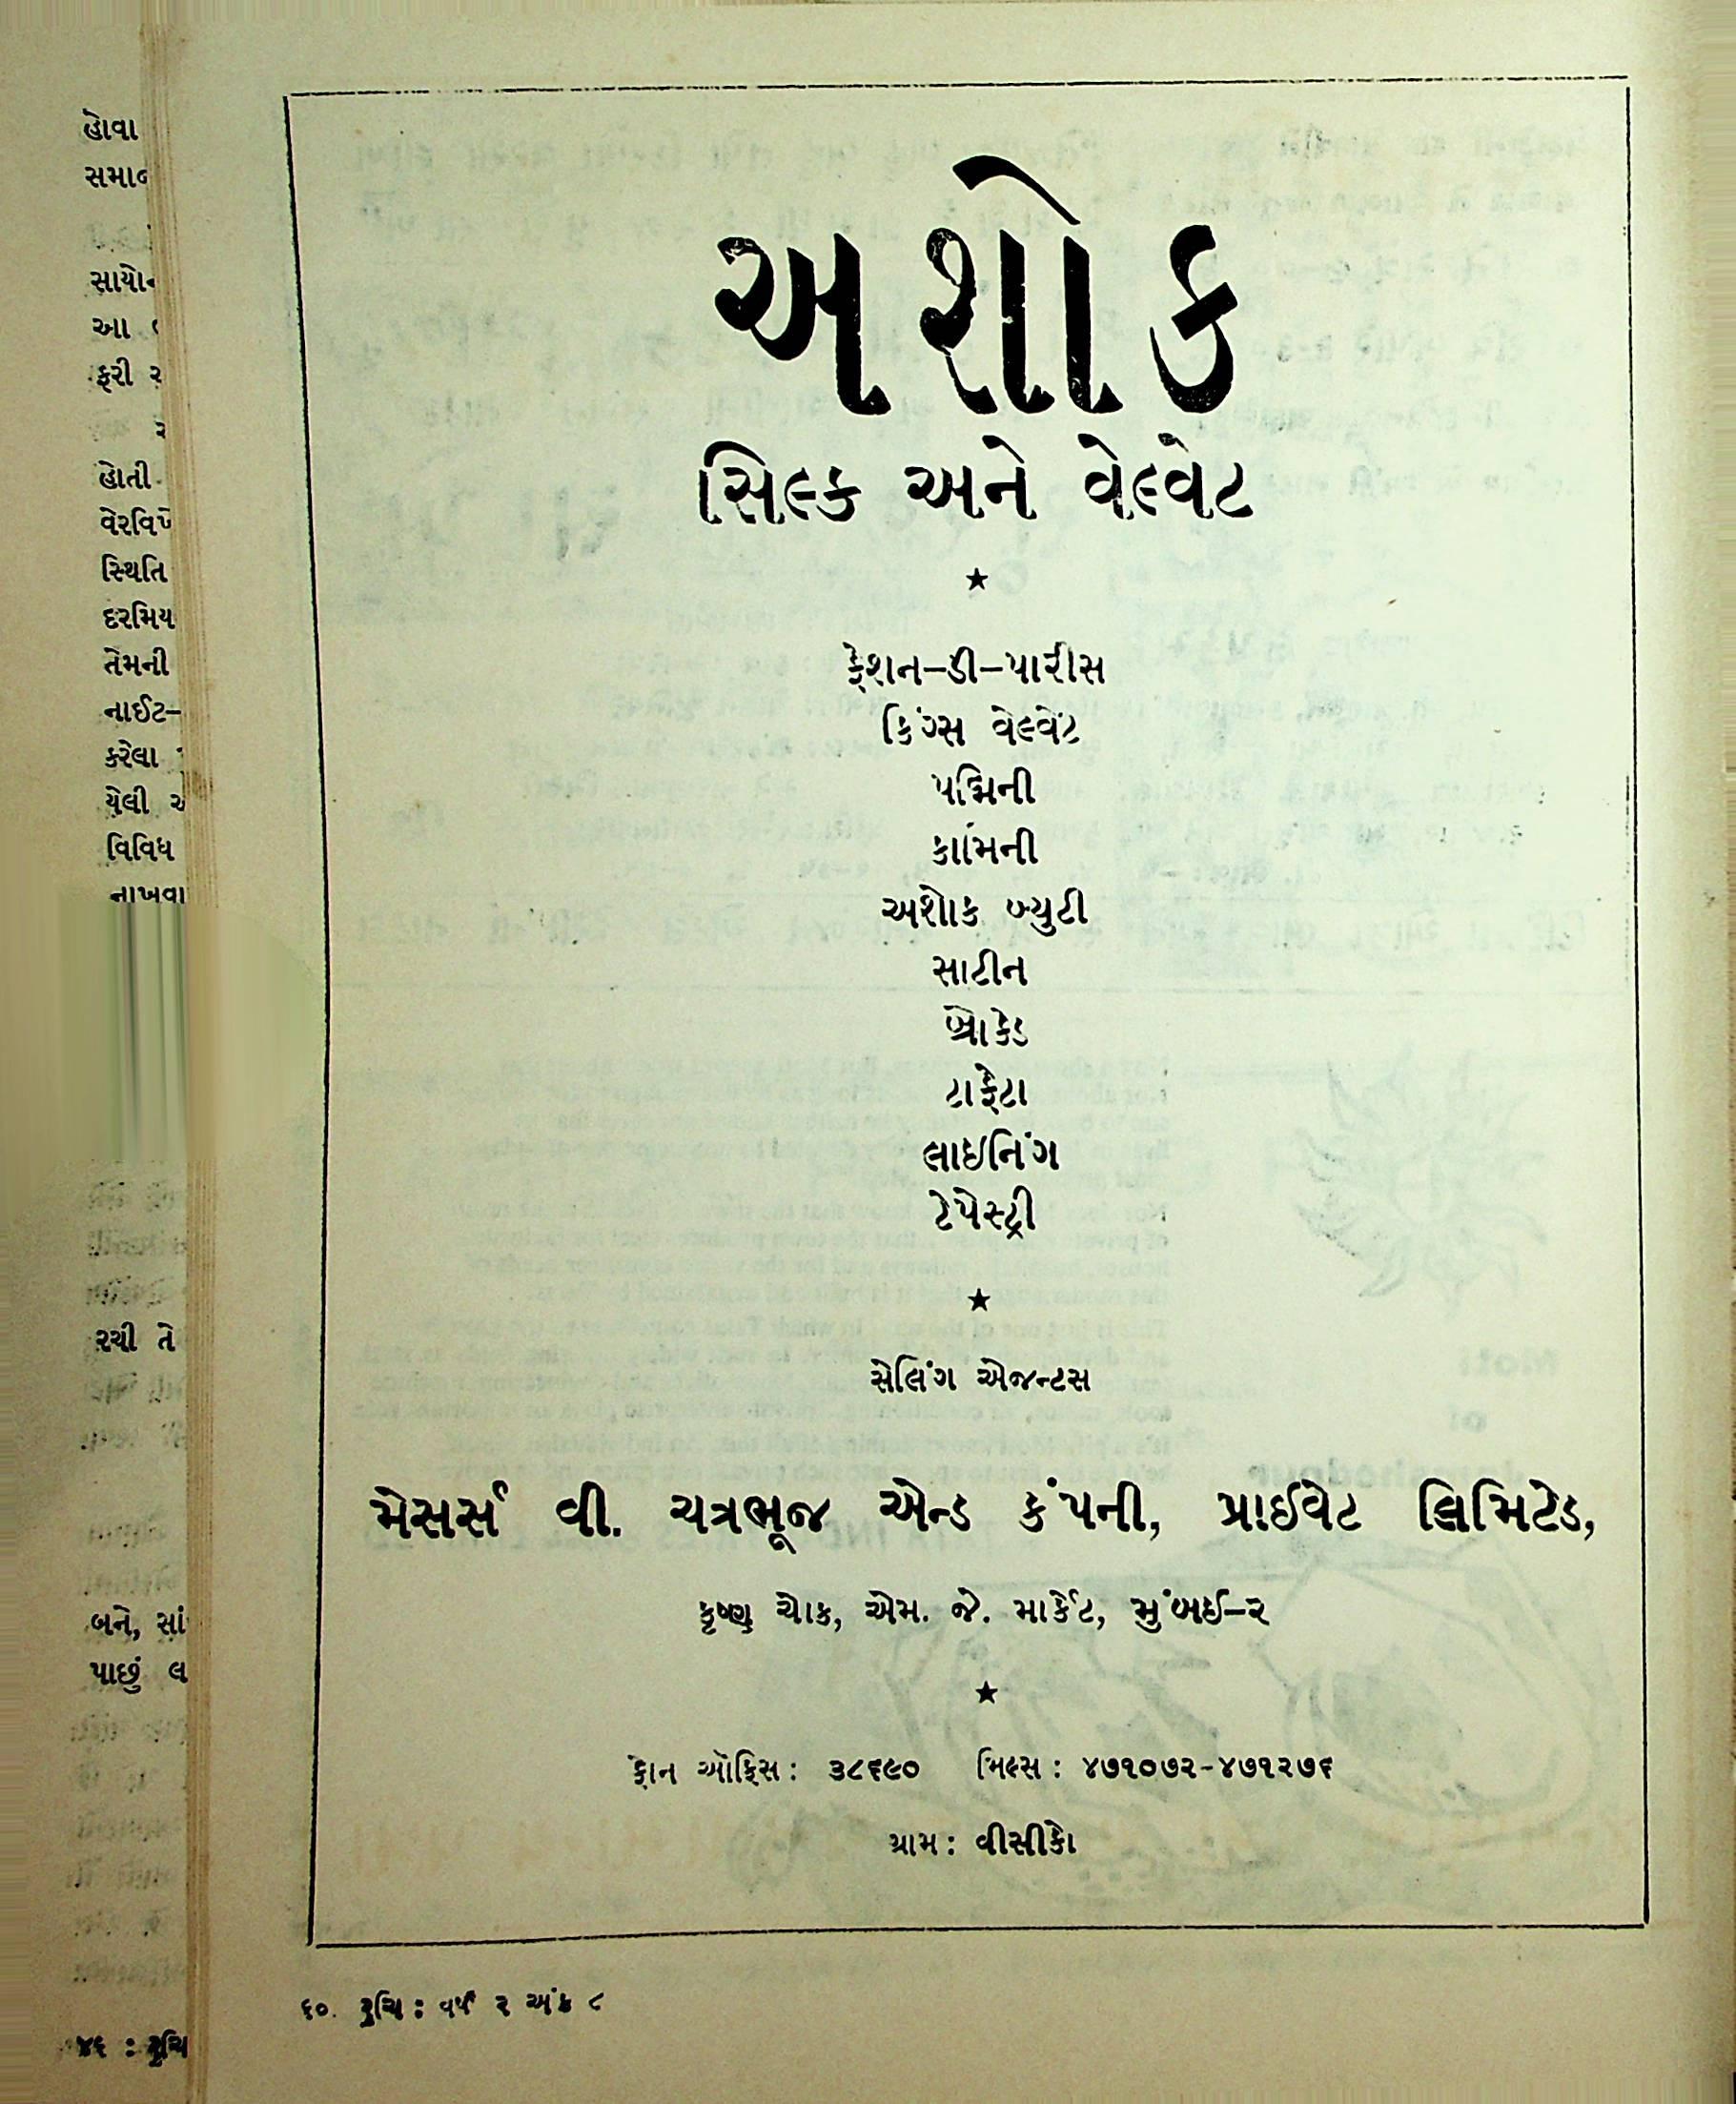 અશોક
સિલ્ક અને વેલ્વેટ
★
ફેશન–ડી–પારીસ
કિંગ્સ વેલ્વેટ
પદ્મિની
કામિની
અશોક બ્યુટી
સાટીન
બ્રોકેડ
ટાફેટા
લાઇનિંગ
ટેપેસ્ટ્રી
★
સેલિંગ એજન્ટસ
મેસર્સ વી. ચત્રભૂજ એન્ડ કંપની, પ્રાઈવેટ લિમિટેડ,
કૃષ્ણ ચોક, એમ. જે. માર્કેટ, મુંબઈ–૨
★
ફોન ઑફિસ : ૩૮૬૯૦ મિલ્સ : ૪૭૧૦૭૨-૪૭૧૨૭૬
ગ્રામ : વીસીકો
૬૦. રુચિ : વર્ષ ૨ અંક ૮
હોવા
સાયોન
આ
ફરી
હોતી
સ્થિતિ
તેમની
નાઈટ–
કરેલા
યેલી
વિવિધ
નાખવા
રચી તે
બને, સાં
પાછું લ
૪૬ : રુચિ